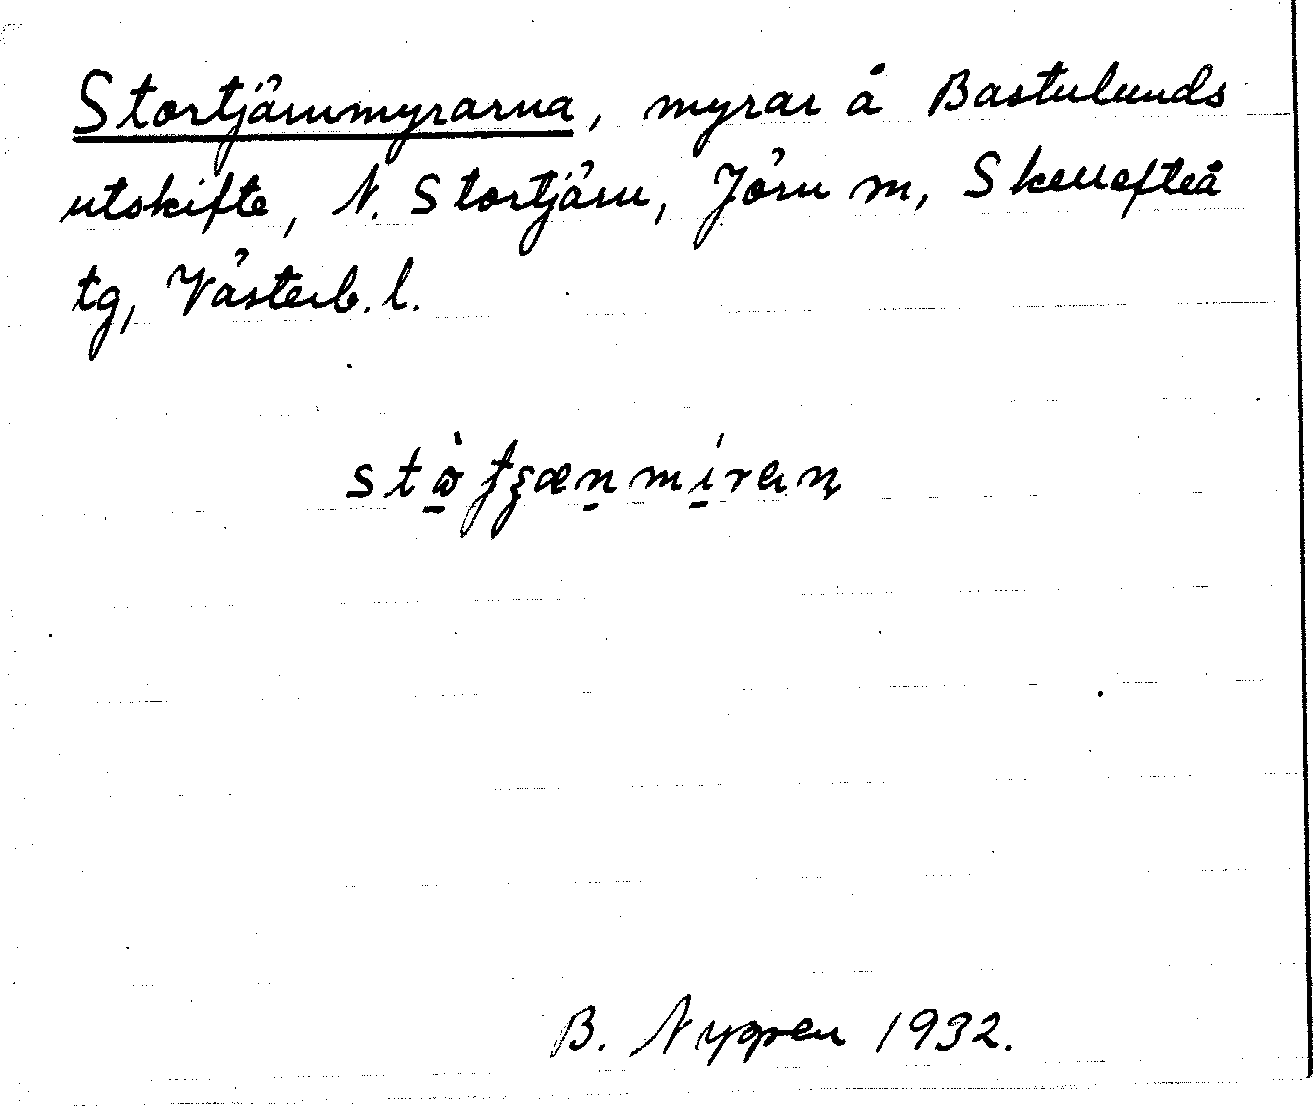 Stortjärnmyrarna, myrar å Bastulunds
utskifte, N. Stortjärn, Jörn sn, Skellefteå
tg, Västerb. l.
B. Nyqren 1932.